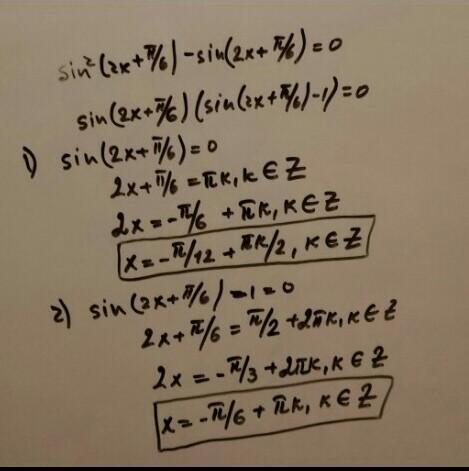 sin²(2x+π/6)-sin(2x+π/6)=0
sin(2x+π/6)(sin(2x+π/6)-1)=0
1) sin(2x+π/6)=0
2x+π/6=πk, k∈Z
2x=-π/6+πk, k∈Z
x=-π/12+πk/2, k∈Z
2) sin(2x+π/6)-1=0
2x+π/6=π/2+2πk, k∈Z
2x=-π/3+2πk, k∈Z
x=-π/6+πk, k∈Z